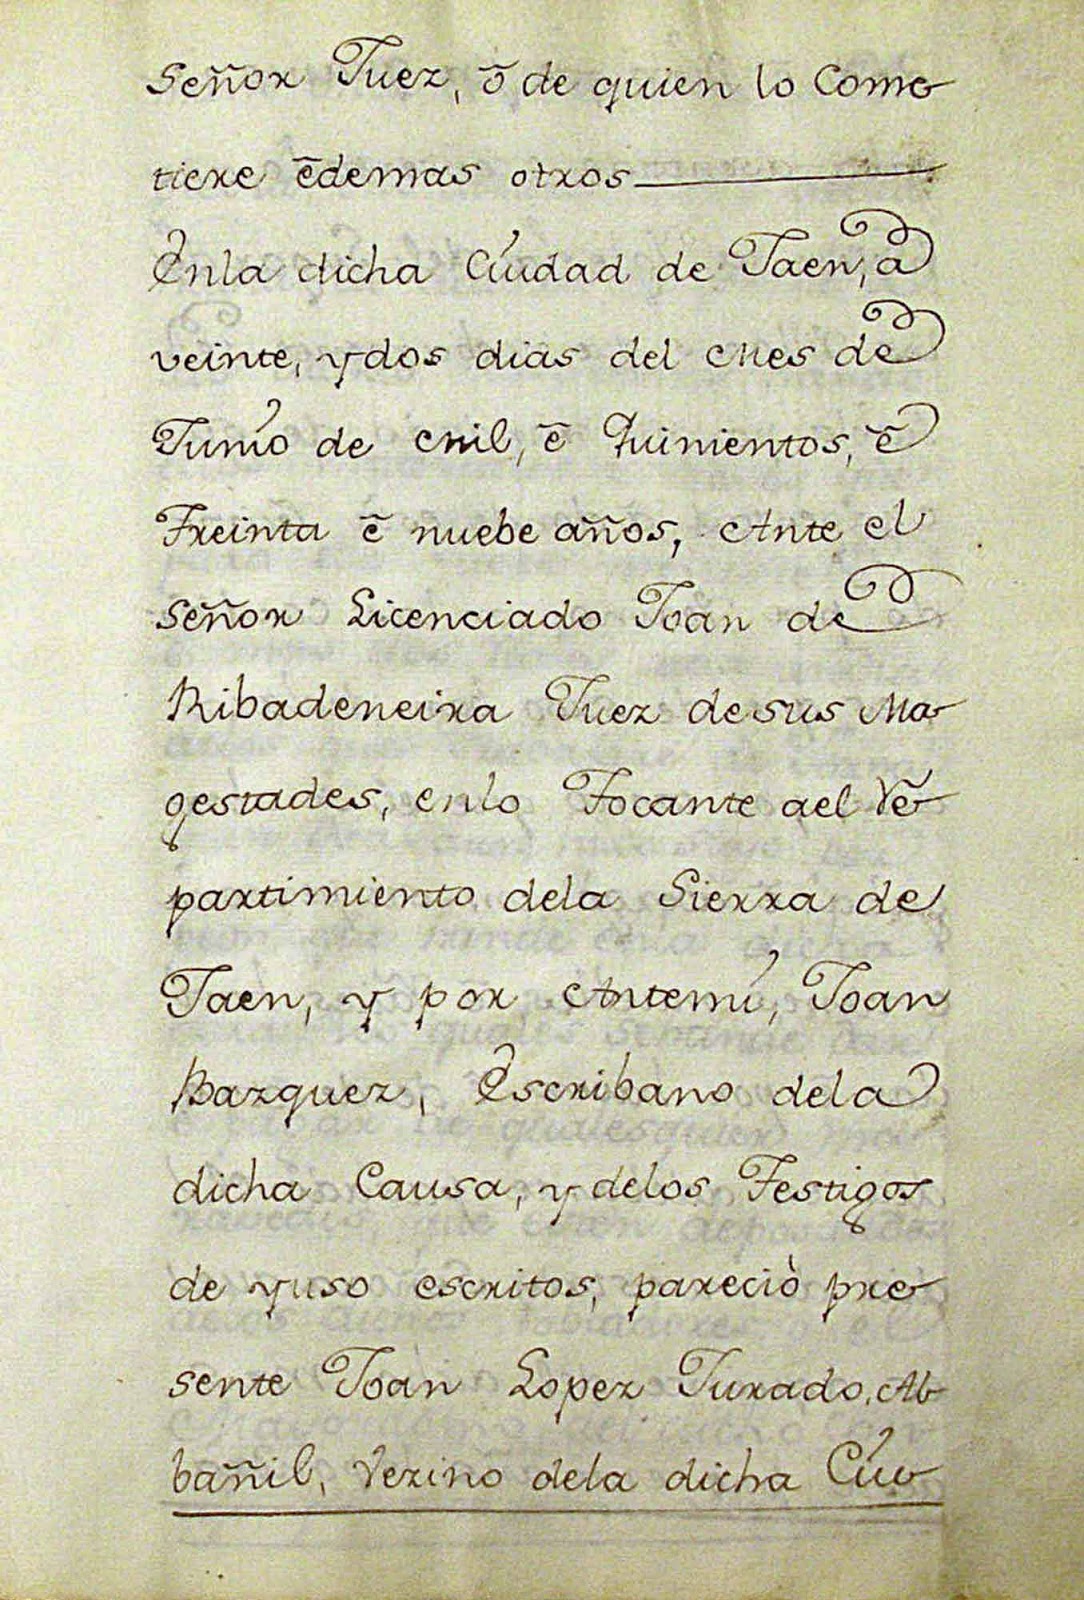 Señor Juez, õ de quien lo Come
tiere ẽdemas otros
Enla dicha Ciudad de Jaen, ã
veinte, y dos dias del Mes de
Junio de mil, ẽ Quinientos, ẽ
Treinta ẽ nuebe años, Ante el
Señor Licenciado Joan de
Ribadeneira Juez de sus Ma
gestades, enlo Tocante ael Re
partimiento dela Sierra de
Jaen, y por Antemi, Joan
Bazquez, Escribano dela
dicha Causa, y delos Testigos
de yuso escritos, pareciò pre
sente Joan Lopez Jurado, Al
bañil, Vezino dela dicha Ciu